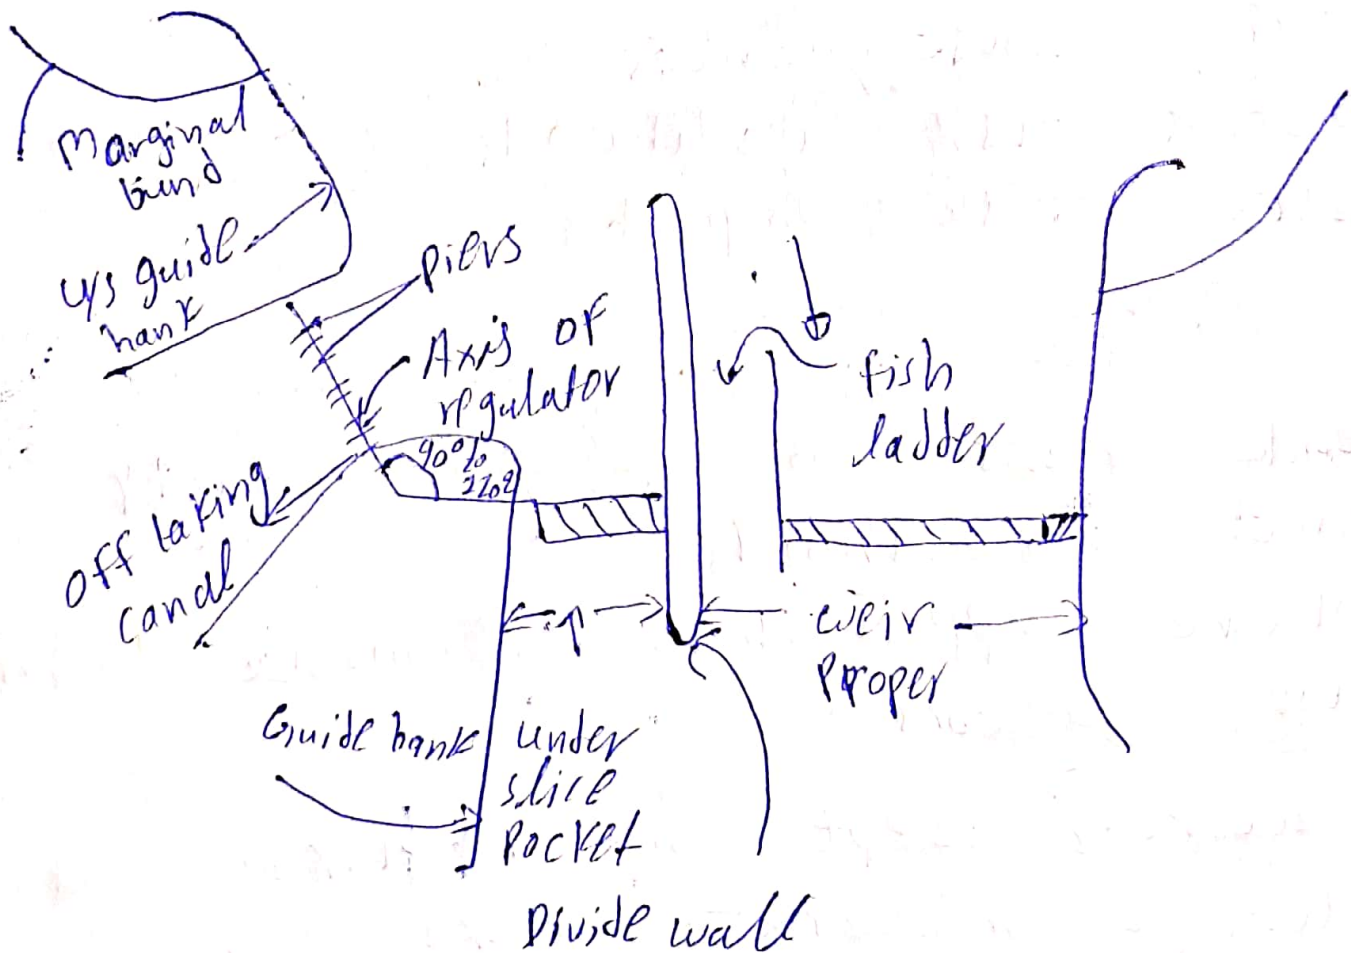 Marginal
bund
u/s guide
bank
Piers
Axis of
regulator
90° to
110°
fish
ladder
off taking
canal
weir
proper
Guide bank
under
slice
pocket
Divide wall